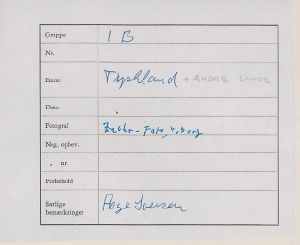 Gruppe 1 B
Nr.
Emne Tyskland + ANDRE LANDE
Dato
Fotograf Bachr. Foto, Viborg
Neg. opbev.
. nr.
Forbehold
Særlige
bemærkninger Aage Iversen